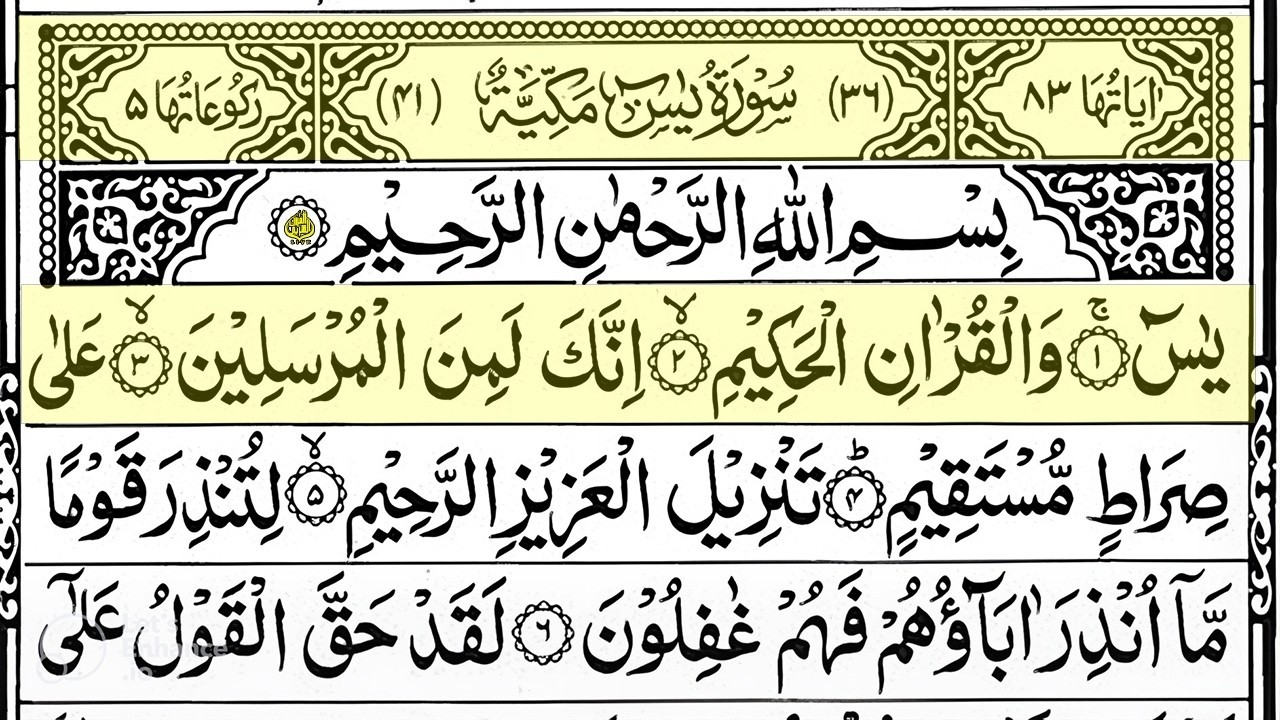 اٰيَاتُهَا ٨٣ (٣٦) سُوْرَةُ يٰسٓ مَكِّيَّةٌ (٤١) رُكُوْعَاتُهَا ٥
بِسْمِ اللّٰهِ الرَّحْمٰنِ الرَّحِيْمِ
يٰسٓ ۚ ﴿١﴾ وَالْقُرْاٰنِ الْحَكِيْمِ ۙ ﴿٢﴾ اِنَّكَ لَمِنَ الْمُرْسَلِيْنَ ۙ ﴿٣﴾ عَلٰى
صِرَاطٍ مُّسْتَقِيْمٍ ؕ ﴿٤﴾ تَنْزِيْلَ الْعَزِيْزِ الرَّحِيْمِ ۙ ﴿٥﴾ لِتُنْذِرَ قَوْمًا
مَّاۤ اُنْذِرَ اٰبَآؤُهُمْ فَهُمْ غٰفِلُوْنَ ﴿٦﴾ لَقَدْ حَقَّ الْقَوْلُ عَلٰٓى
Let's
Enhance
.io